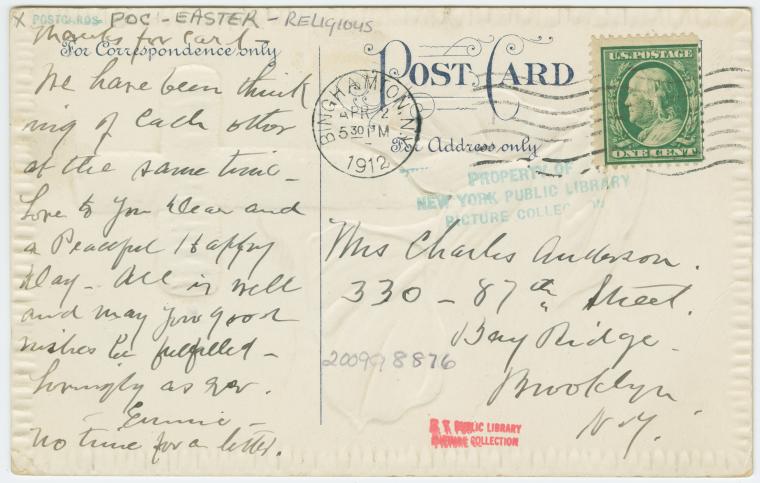 X POSTCARDS - POC - EASTER - RELIGIOUS
Thanks for card -
For Correspondence only
We have been think
ing of each other
at the same time -
Love to you dear and
a Peaceful Happy
day - All is well
and may your good
wishes be fulfilled -
Lovingly as ever.
- Emmie -
no time for a letter.
POST CARD
BINGHAMTON, N.Y.
APR 2
5 30 PM
1912
U.S. POSTAGE
ONE CENT
For Address only
PROPERTY OF
NEW YORK PUBLIC LIBRARY
PICTURE COLLECTION
Mrs Charles Anderson.
330 - 87th Street.
Bay Ridge -
Brooklyn
N-Y.
200998876
N. Y. PUBLIC LIBRARY
PICTURE COLLECTION